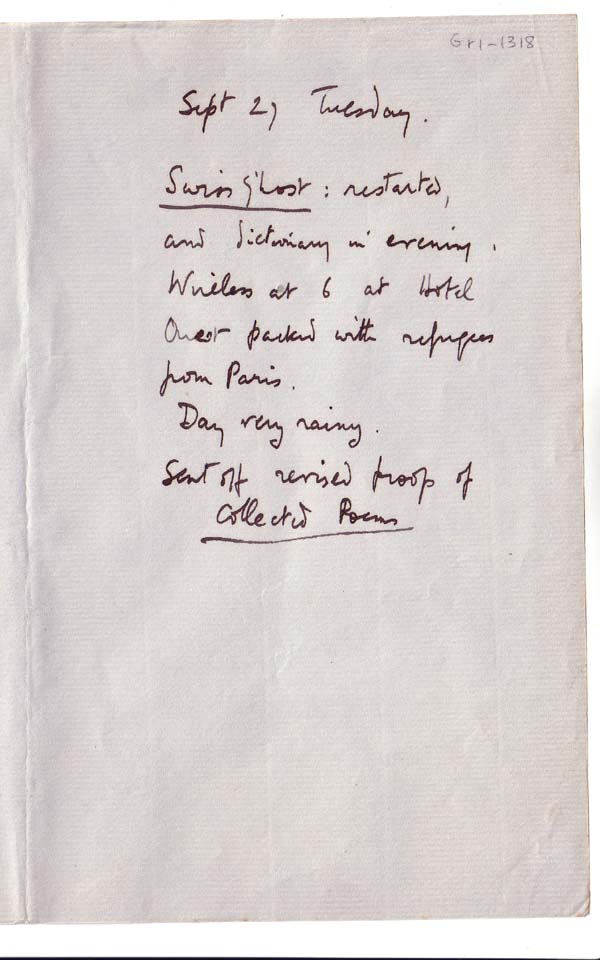 Gr1-1318
Sept 27 Tuesday.
Swiss Ghost : restarted,
and dictionary in evening.
Wireless at 6 at Hotel
Ouest packed with refugees
from Paris.
Day very rainy.
Sent off revised proofs of
Collected Poems